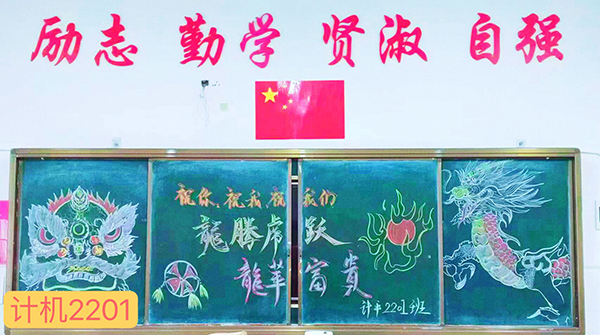 励志 勤学 贤淑 自强
祝你,祝我,祝我们
龍騰虎跃
龍華富貴
2201班
计机2201